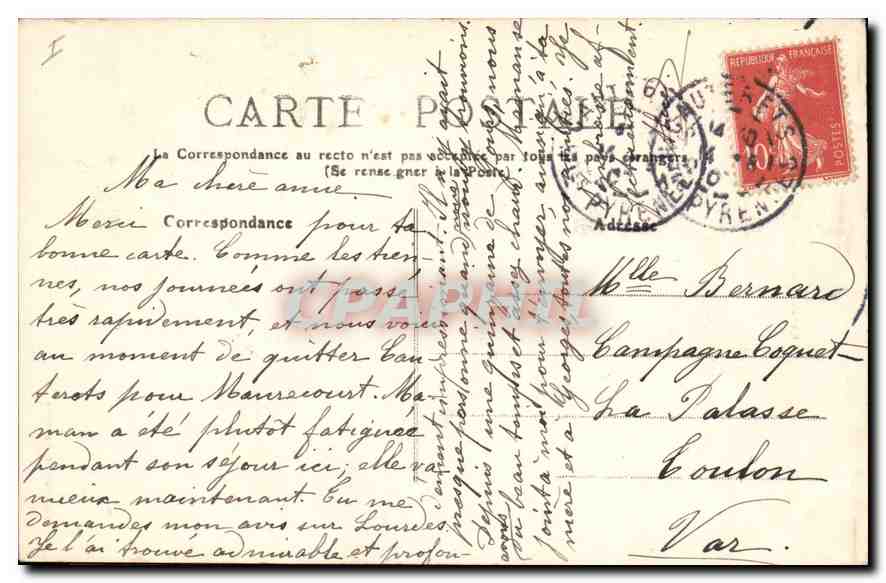 I
CARTE POSTALE
La Correspondance au recto n'est pas acceptée par tous les pays étrangers
(Se renseigner à la Poste)
Correspondance
Adresse
Ma chère amie
Merci pour ta
bonne carte. Comme les tien-
nes, nos journées ont passé
très rapidement, et nous voici
au moment de quitter Cau-
terets pour Maurecourt. Ma-
man a été plutôt fatiguée
pendant son séjour ici; elle va
mieux maintenant. Tu me
demandes mon avis sur Lourdes
Je l'ai trouvé admirable et profon-
dément impressionnant. Il n'y avait
presque personne quand nous y trouvions.
Depuis une quinzaine de jours nous
avons du beau temps et assez chaud. Maman se
joint à moi pour t'envoyer, ainsi qu'à ta
mère et à Georges, toutes nos amitiés. Je
Mlle Bernard
Campagne Coquet
La Palasse
Toulon
Var.
REPUBLIQUE FRANÇAISE
10
POSTES
CAUTERETS
PYRENEES
CPAPHIL